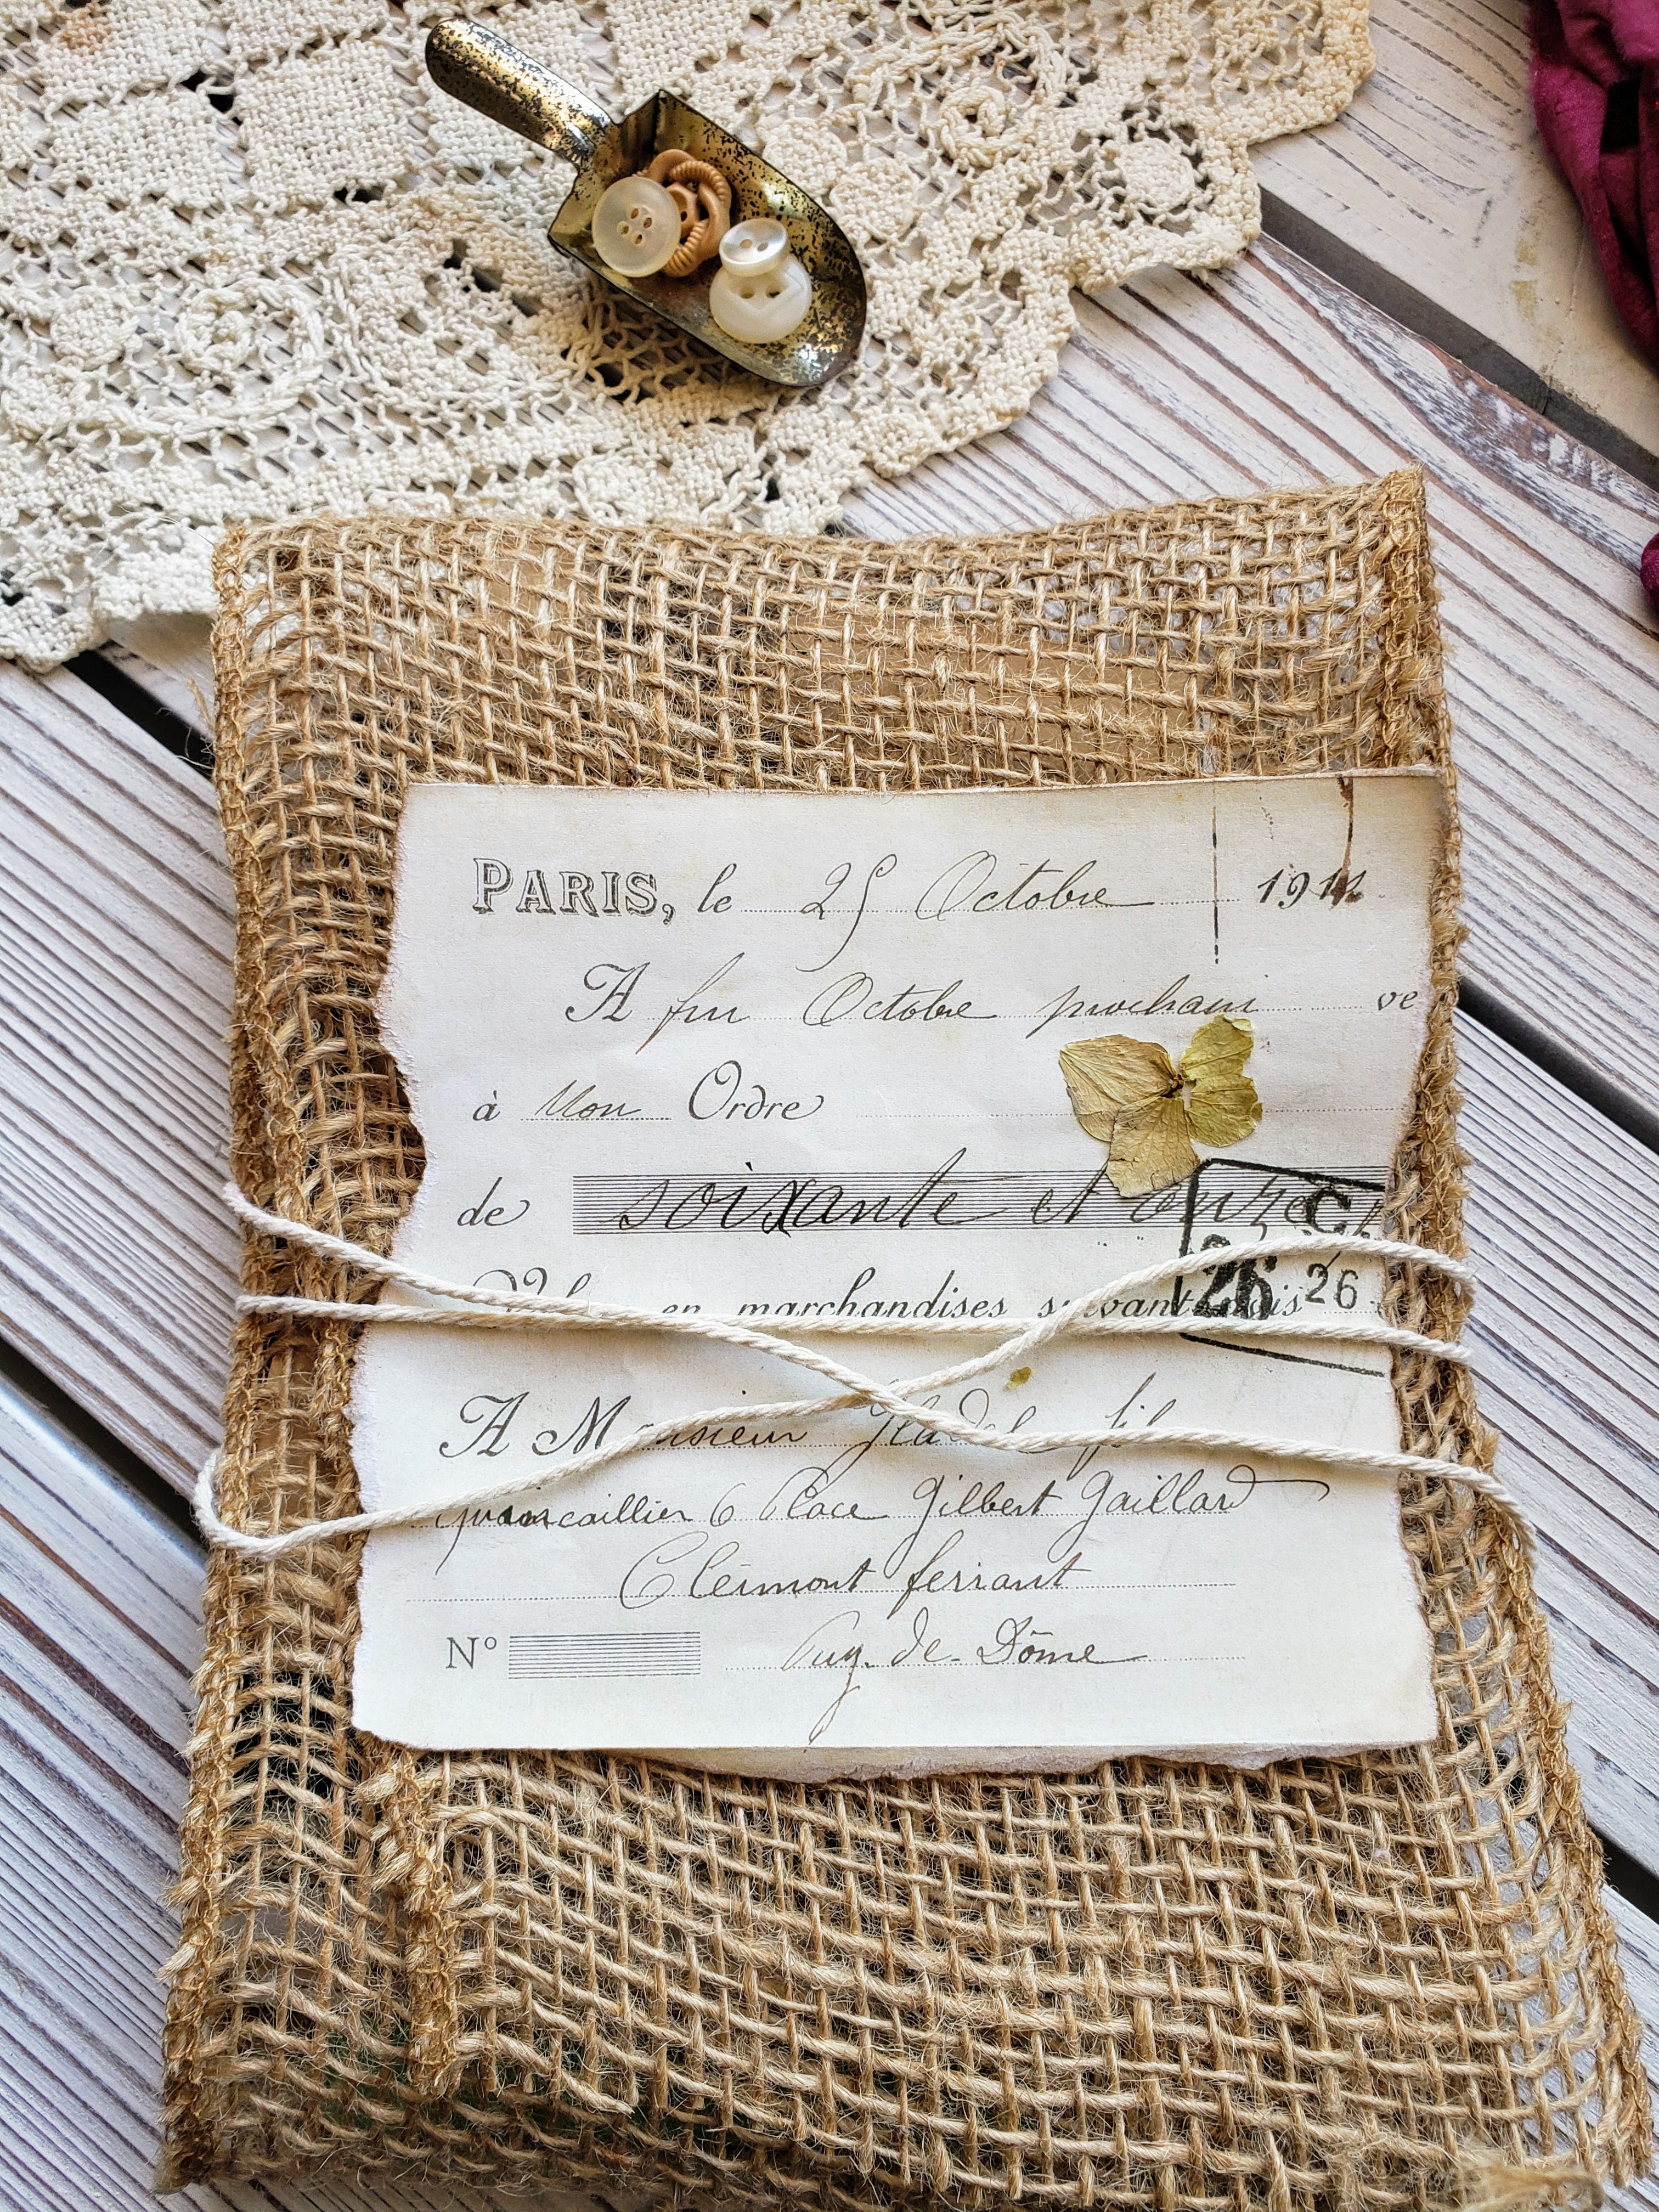 PARIS, le 25 Octobre 191
A fin Octobre prochain ve
à Mon Ordre
de soixante et onze
C
26 26
en marchandises suivant
A Monsieur fils
quincaillier 6 Place Gilbert Gaillard
Clermont ferrant
Nº Puy-de-Dôme